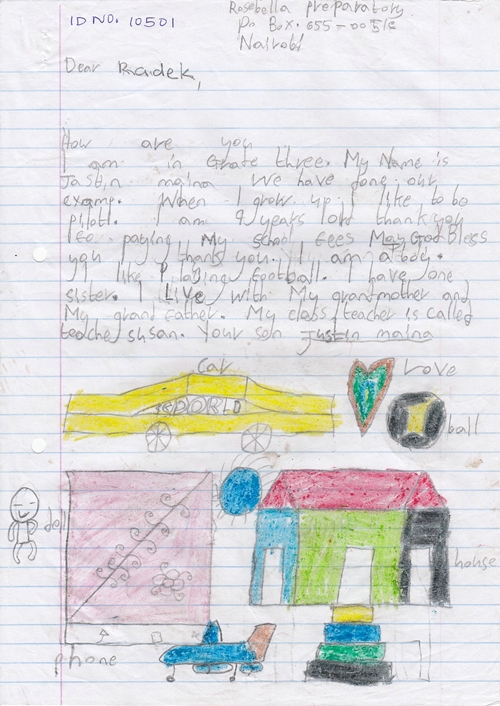 ID NO. 10501
Rosebella preparatory
Po Box. 655-00516
Nairobi
Dear Radek,
How are you
I am in Grate three. My Name is
Jastin maina We have done our
examp. When I grow up I like to be
pilotl. I am 9 years lold thank you
feo paying My school fees May God Bless
you I thank you. I am a boy.
I like Plaging football. I have one
sister. I Live with My grandmother and
My grand father. My class teacher is called
teache susan. Your son Justin maina
Car
Love
WORLD
ball
doll
house
phone